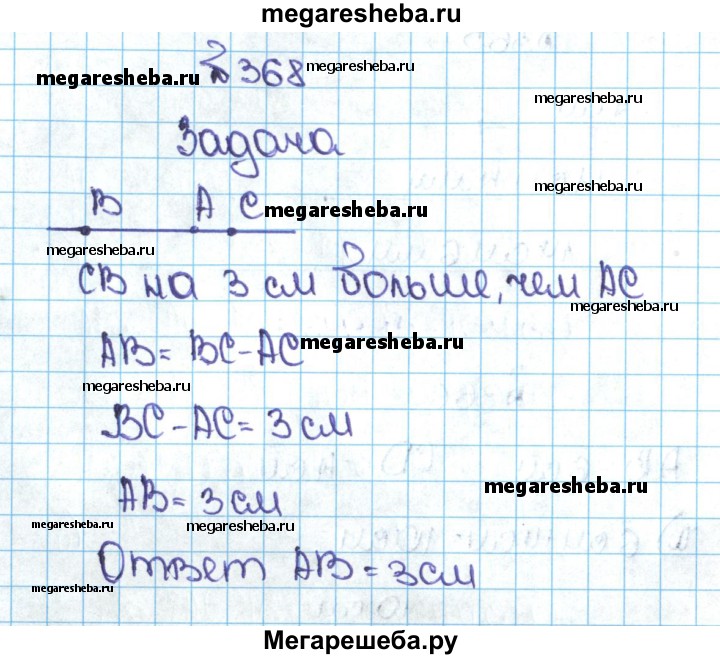 megaresheba.ru
№368
megaresheba.ru megaresheba.ru
megaresheba.ru
Задача
megaresheba.ru
B A C megaresheba.ru
megaresheba.ru
СВ на 3 см больше, чем АС
megaresheba.ru
АВ = ВС - АС megaresheba.ru
megaresheba.ru
ВС - АС = 3 см
АВ = 3 см megaresheba.ru
megaresheba.ru megaresheba.ru
Ответ АВ = 3 см
megaresheba.ru
Мегарешеба.ру